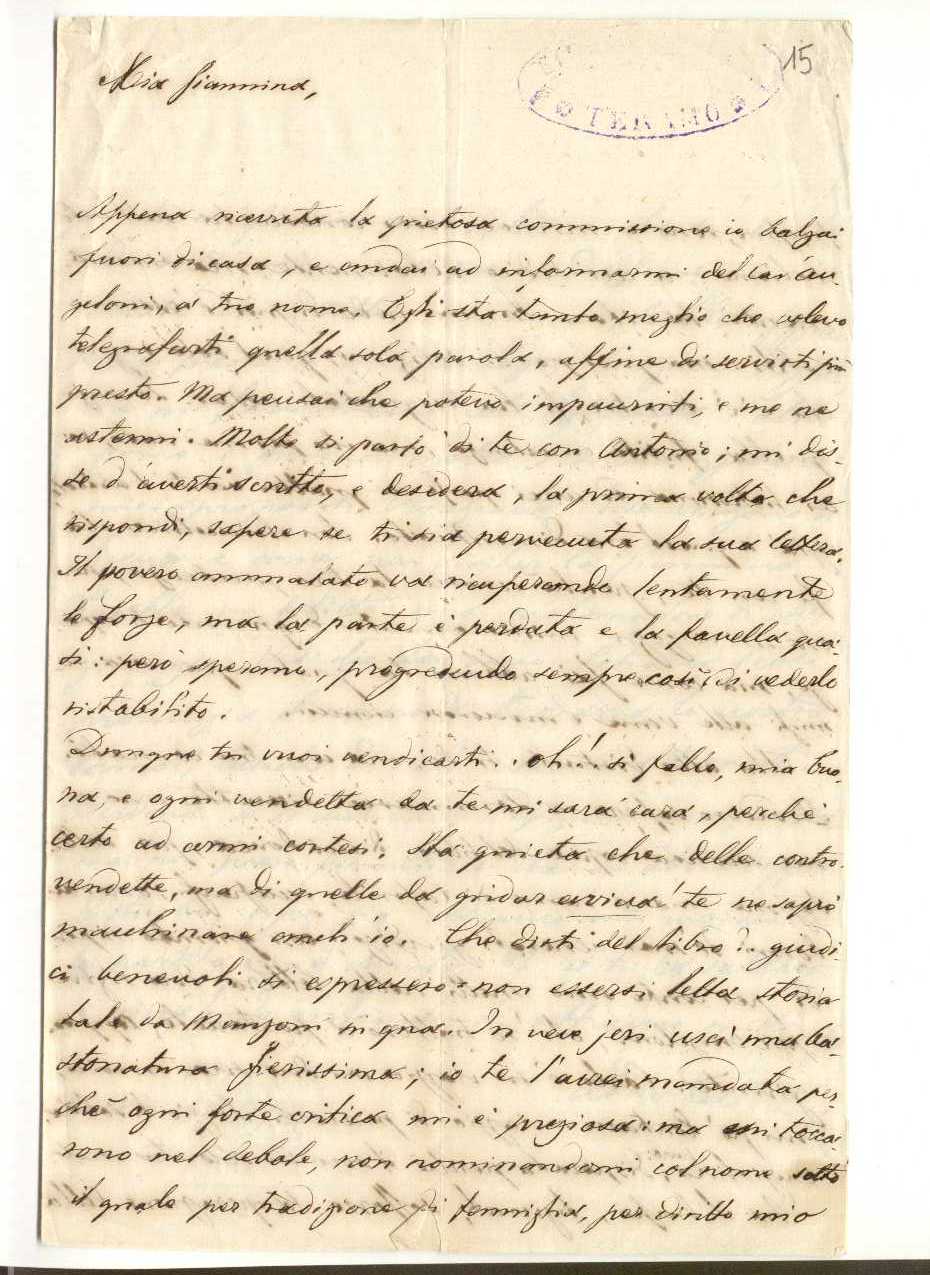 15
TERAMO
Mia Giannina,
Appena ricevuta la pietosa commissione io balzai
fuori di casa, e andai ad informarmi del Cav. An-
geloni, a tuo nome. Egli sta tanto meglio che volevo
telegrafarti quella sola parola, affine di servirti più
presto. Ma pensai che potevo impaurirti, e me ne
astenni. Molto si parlò di te con Antonio; mi dis-
se d'averti scritto, e desidera, la prima volta che
rispondi, sapere se ti sia pervenuta la sua lettera.
Il povero ammalato va ricuperando lentamente
le forze, ma la parte è perduta e la favella qua-
si: però speriamo, progredendo sempre così, di vederlo
ristabilito.
Dunque tu vuoi vendicarti.. oh!.. si fallo, mia buo-
na, e ogni vendetta da te mi sarà cara, perchè
certo ad armi cortesi. Sta quieta che delle contro-
vendette, ma di quelle da gridar evviva! te ne saprò
macchinare anch'io. Che dirti del libro?.. giudi-
ci benevoli si espressero non essersi letta storia
tale da Manzoni in qua. In vece jeri uscì una ba-
stonatura fierissima; io te l'avrei mandata per-
chè ogni forte critica mi è preziosa: ma mi tocca-
rono nel debole, non nominandomi col nome sotto
il quale per tradizione di famiglia, per diritto mio